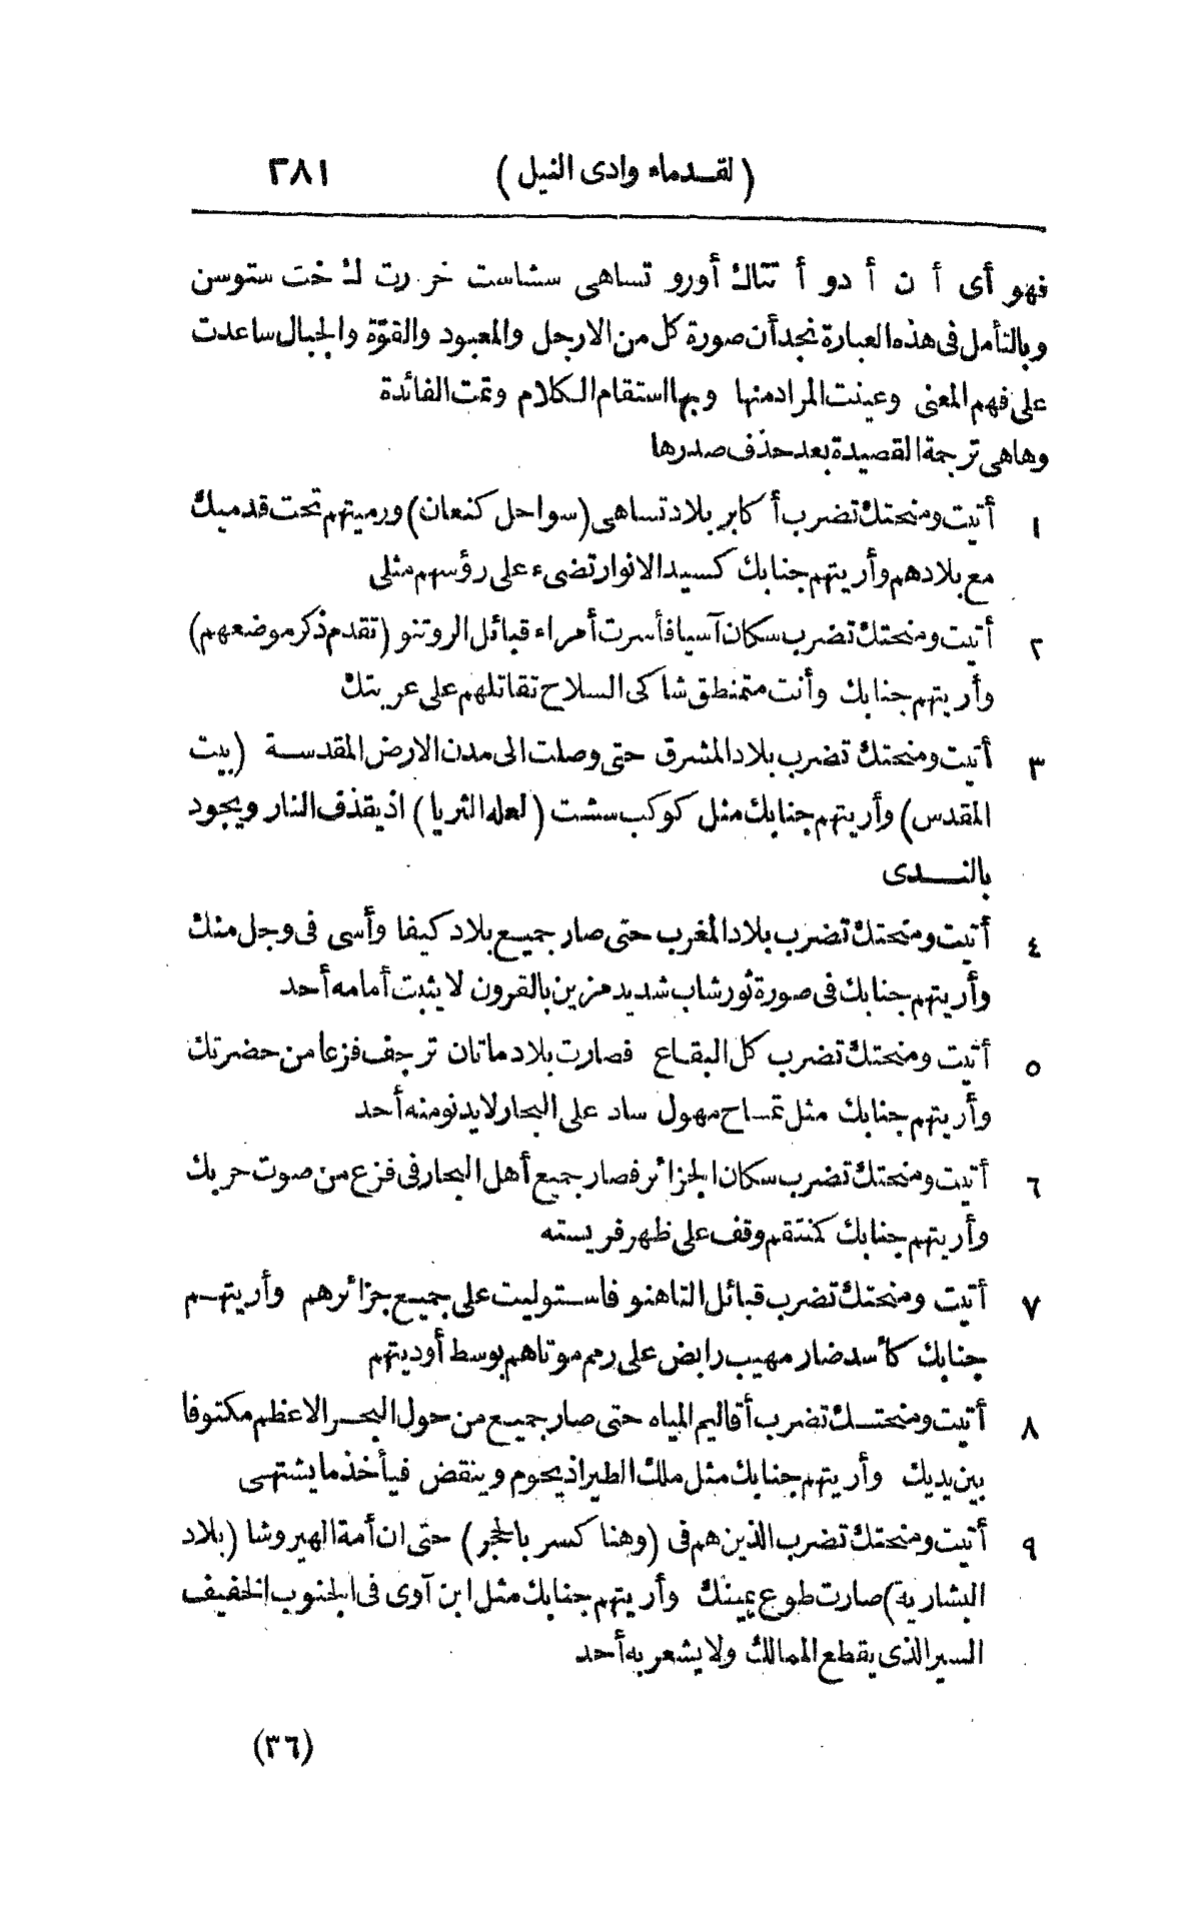 (لقدماء وادى النيل) ٢٨١
فهو أى أ ن أ دو أ تتاك أورو تساهى سشاست خر رت ك خت ستوسن
وبالتأمل فى هذه العبارة نجد أن صورة كل من الارجل والمعبود والقوّة والجبال ساعدت
على فهم المعنى وعينت المراد منها وبها استقام الكلام وتمت الفائدة
وهاهى ترجمة القصيدة بعد حذف صدرها
١ أتيت ومنحتك تضرب أكابر بلاد تساهى (سواحل كنعان) ورميتهم تحت قدميك
مع بلادهم وأريتهم جنابك كسيد الانوار تضىء على رؤسهم مثلى
٢ أتيت ومنحتك تضرب سكان آسيا فأسرت أمراء قبائل الروتنو (تقدم ذكر موضعهم)
وأريتهم جنابك وأنت متمنطق شاكى السلاح تقاتلهم على عربتك
٣ أتيت ومنحتك تضرب بلاد المشرق حتى وصلت الى مدن الارض المقدسة (بيت
المقدس) وأريتهم جنابك مثل كوكب سشت (لعله الثريا) اذ يقذف النار ويجود
بالندى
٤ أتيت ومنحتك تضرب بلاد المغرب حتى صار جميع بلاد كيفا وأسى فى وجل منك
وأريتهم جنابك فى صورة ثور شاب شديد مزين بالقرون لا يثبت أمامه أحد
٥ أتيت ومنحتك تضرب كل البقاع فصارت بلاد ماتان ترجف فزعا من حضرتك
وأريتهم جنابك مثل تمساح مهول ساد على البحار لايدنو منه أحد
٦ أتيت ومنحتك تضرب سكان الجزائر فصار جميع أهل البحار فى فزع من صوت حربك
وأريتهم جنابك كمنتقم وقف على ظهر فريسته
٧ أتيت ومنحتك تضرب قبائل التاهنو فاستوليت على جميع جزائرهم وأريتهم
جنابك كأسد ضار مهيب رابض على رمم موتاهم بوسط أوديتهم
٨ أتيت ومنحتك تضرب أقاليم المياه حتى صار جميع من حول البحر الاعظم مكتوفا
بين يديك وأريتهم جنابك مثل ملك الطير اذ يحوم وينقض فيأخذ ما يشتهى
٩ أتيت ومنحتك تضرب الذين هم فى (وهنا كسر بالحجر) حتى ان أمة الهيروشا (بلاد
البشارية) صارت طوع يمينك وأريتهم جنابك مثل ابن آوى فى الجنوب الخفيف
السير الذى يقطع الممالك ولا يشعر به أحد
(٣٦)